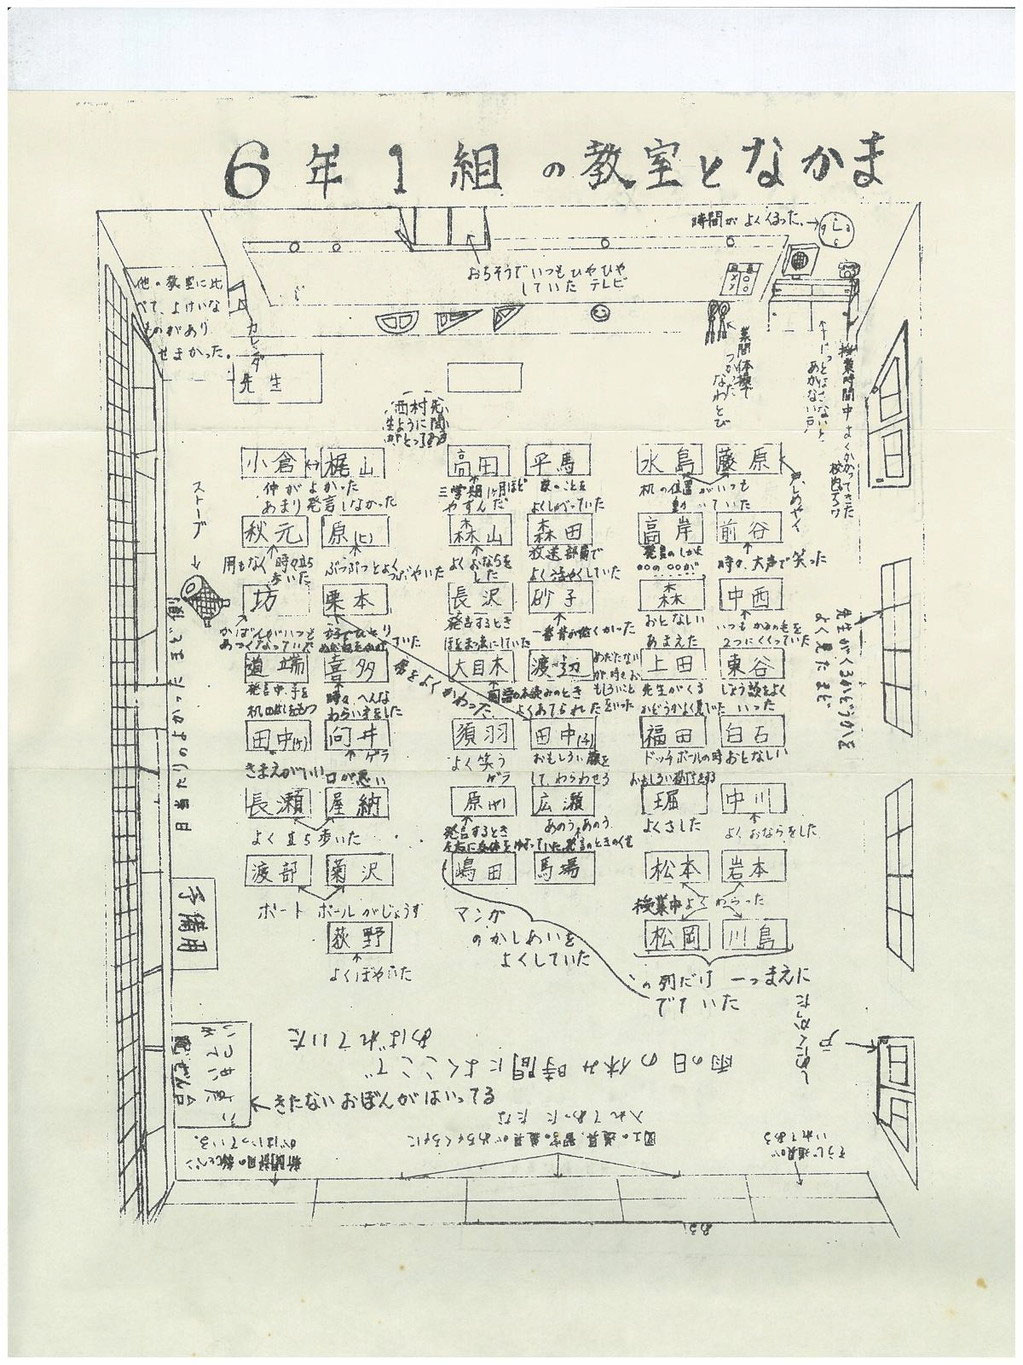 6年1組の教室となかま
時間がよくくるった。
おちそうでいつもひやひや
していた テレビ
他の教室に比
べて、よけいな
ものがあり
せまかった。
カレンダー
先生
業間体操で
つかった
なわとび
あかない戸
授業時間中よくかかってきた
西村先
小倉
梶山
高田
平馬
水島
藤原
仲がよかった
あまり発言しなかった
三学期1ヶ月ほど
やすんだ
家のことを
よくしゃべっていた
机の位置がいつも
動いていた
ストーブ
秋元
原(ヒ)
森山
森田
高岸
前谷
用もなく時々立ち
歩いた
ぶつぶつとよく
つぶやいた
よくおならを
した
放送部員で
よく活やくしていた
時々、大声で笑った
坊
栗本
長沢
砂子
森
中西
かばんがいつも
あつくなっていた
発言するとき
ほほをまっ赤にしていた
一番背が低くかった
おとない
あまえた
いつもかみの毛を
2つにくくっていた
先生がくるかどうかを
よく見たまど
道端
喜多
大目木
渡辺
上田
東谷
時々へんな
わらい方をした
国語の本読みのとき
よくあてられた
先生がくる
かどうかよく見ていた
じょう談をよく
いった
田中(ケ)
向井
須羽
田中(ふ)
福田
白石
きまえがいい
ゲラ
口が悪い
よく笑う
ゲラ
おもしろい顔を
して、わらわせる
ドッチボールの時
おもしろい逃げ方をする
おとない
長瀬
屋納
原(ヤ)
広瀬
堀
中川
よく立ち歩いた
発言するとき
左右に身体をゆすっていた
あのう、あのう
発言のときのくせ
よくさした
よくおならをした
渡部
菊沢
嶋田
馬場
松本
岩本
ポートボールがじょうず
マンガ
のかしあいを
よくしていた
授業中よくわらった
荻野
松岡
川島
よくぼやいた
この列だけ 一つまえに
でていた
予備用
戸
しめにくかった
雨の日の休み時間によくここで
あばれていた
きたないおぼんがはいってる
入れてあったたな
そうじ道具が
いれてある